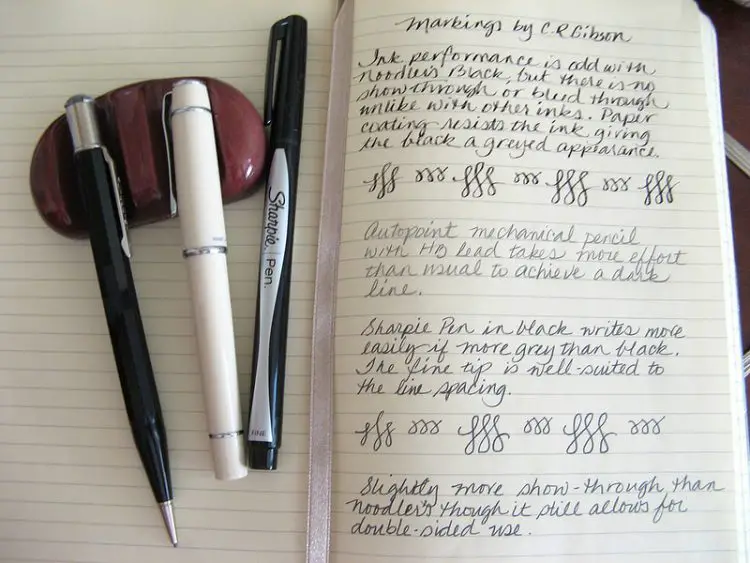 Markings by C.R. Gibson
Ink performance is odd with
noodler's Black, but there is no
show-through or bleed through
unlike with other inks. Paper
coating resists the ink giving
the black a greyed appearance.
Autopoint mechanical pencil
with HB lead takes more effort
than usual to achieve a dark
line.
Sharpie Pen in black writes more
easily if more grey than black.
The fine tip is well-suited to
the line spacing.
Slightly more show-through than
noodler's though it still allows for
double-sided use.
Sharpie Pen.
FINE